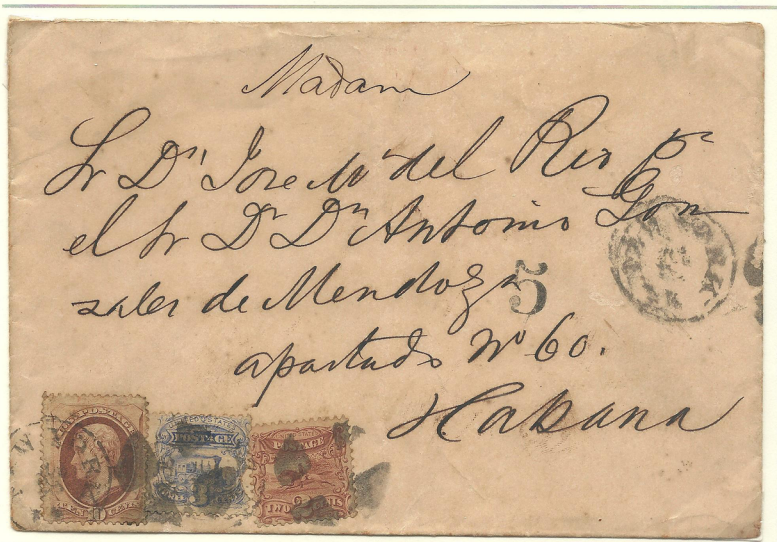 Madam
Sr Dn Jose Ma del Rio pr
el Sr Dr Dn Antonio Gon
zales de Mendoza
5
apartado No 60.
Habana
POSTAGE
POSTAGE